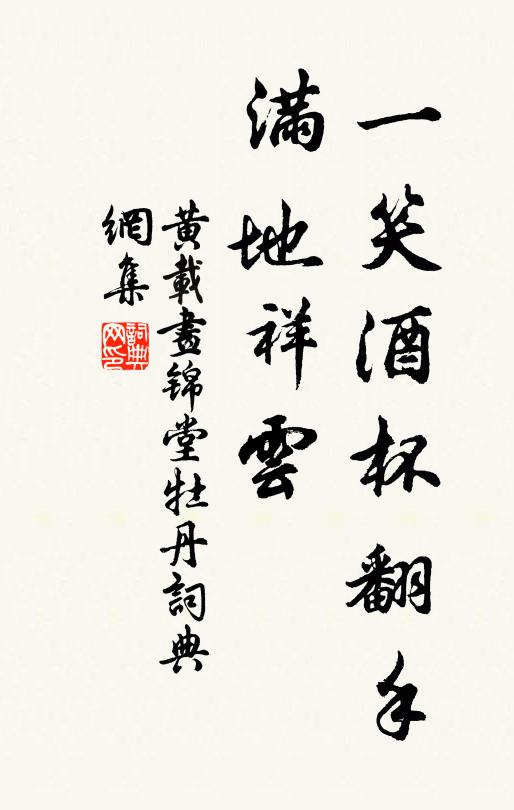 一笑酒杯翻手
滿地祥雲
黃載晝錦堂牡丹詞典
網集
詞典网印